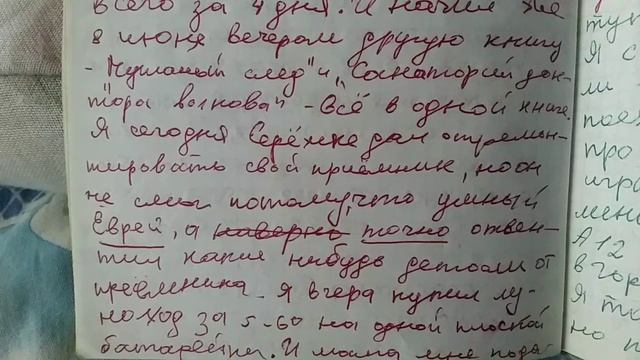 всего за 4 дня. И начил же
8 июне вечером другую книгу
- Чужаный след" и "Санаторий док-
тора волкова" - Всё в одной книге.
Я сегодня Серёжке дал отремон-
тировать свой приёмник, но он
не смог потому, что умный
Еврей, а наверно точно отвен-
тил какие нибудь детали от
преёмника. Я вчера купил лу-
ноход за 5-60 на одной плоской
батарейке. И мама мне пода-
Я с
ли
поех
про
игра
мен
А 12
в гор
Я то
но п